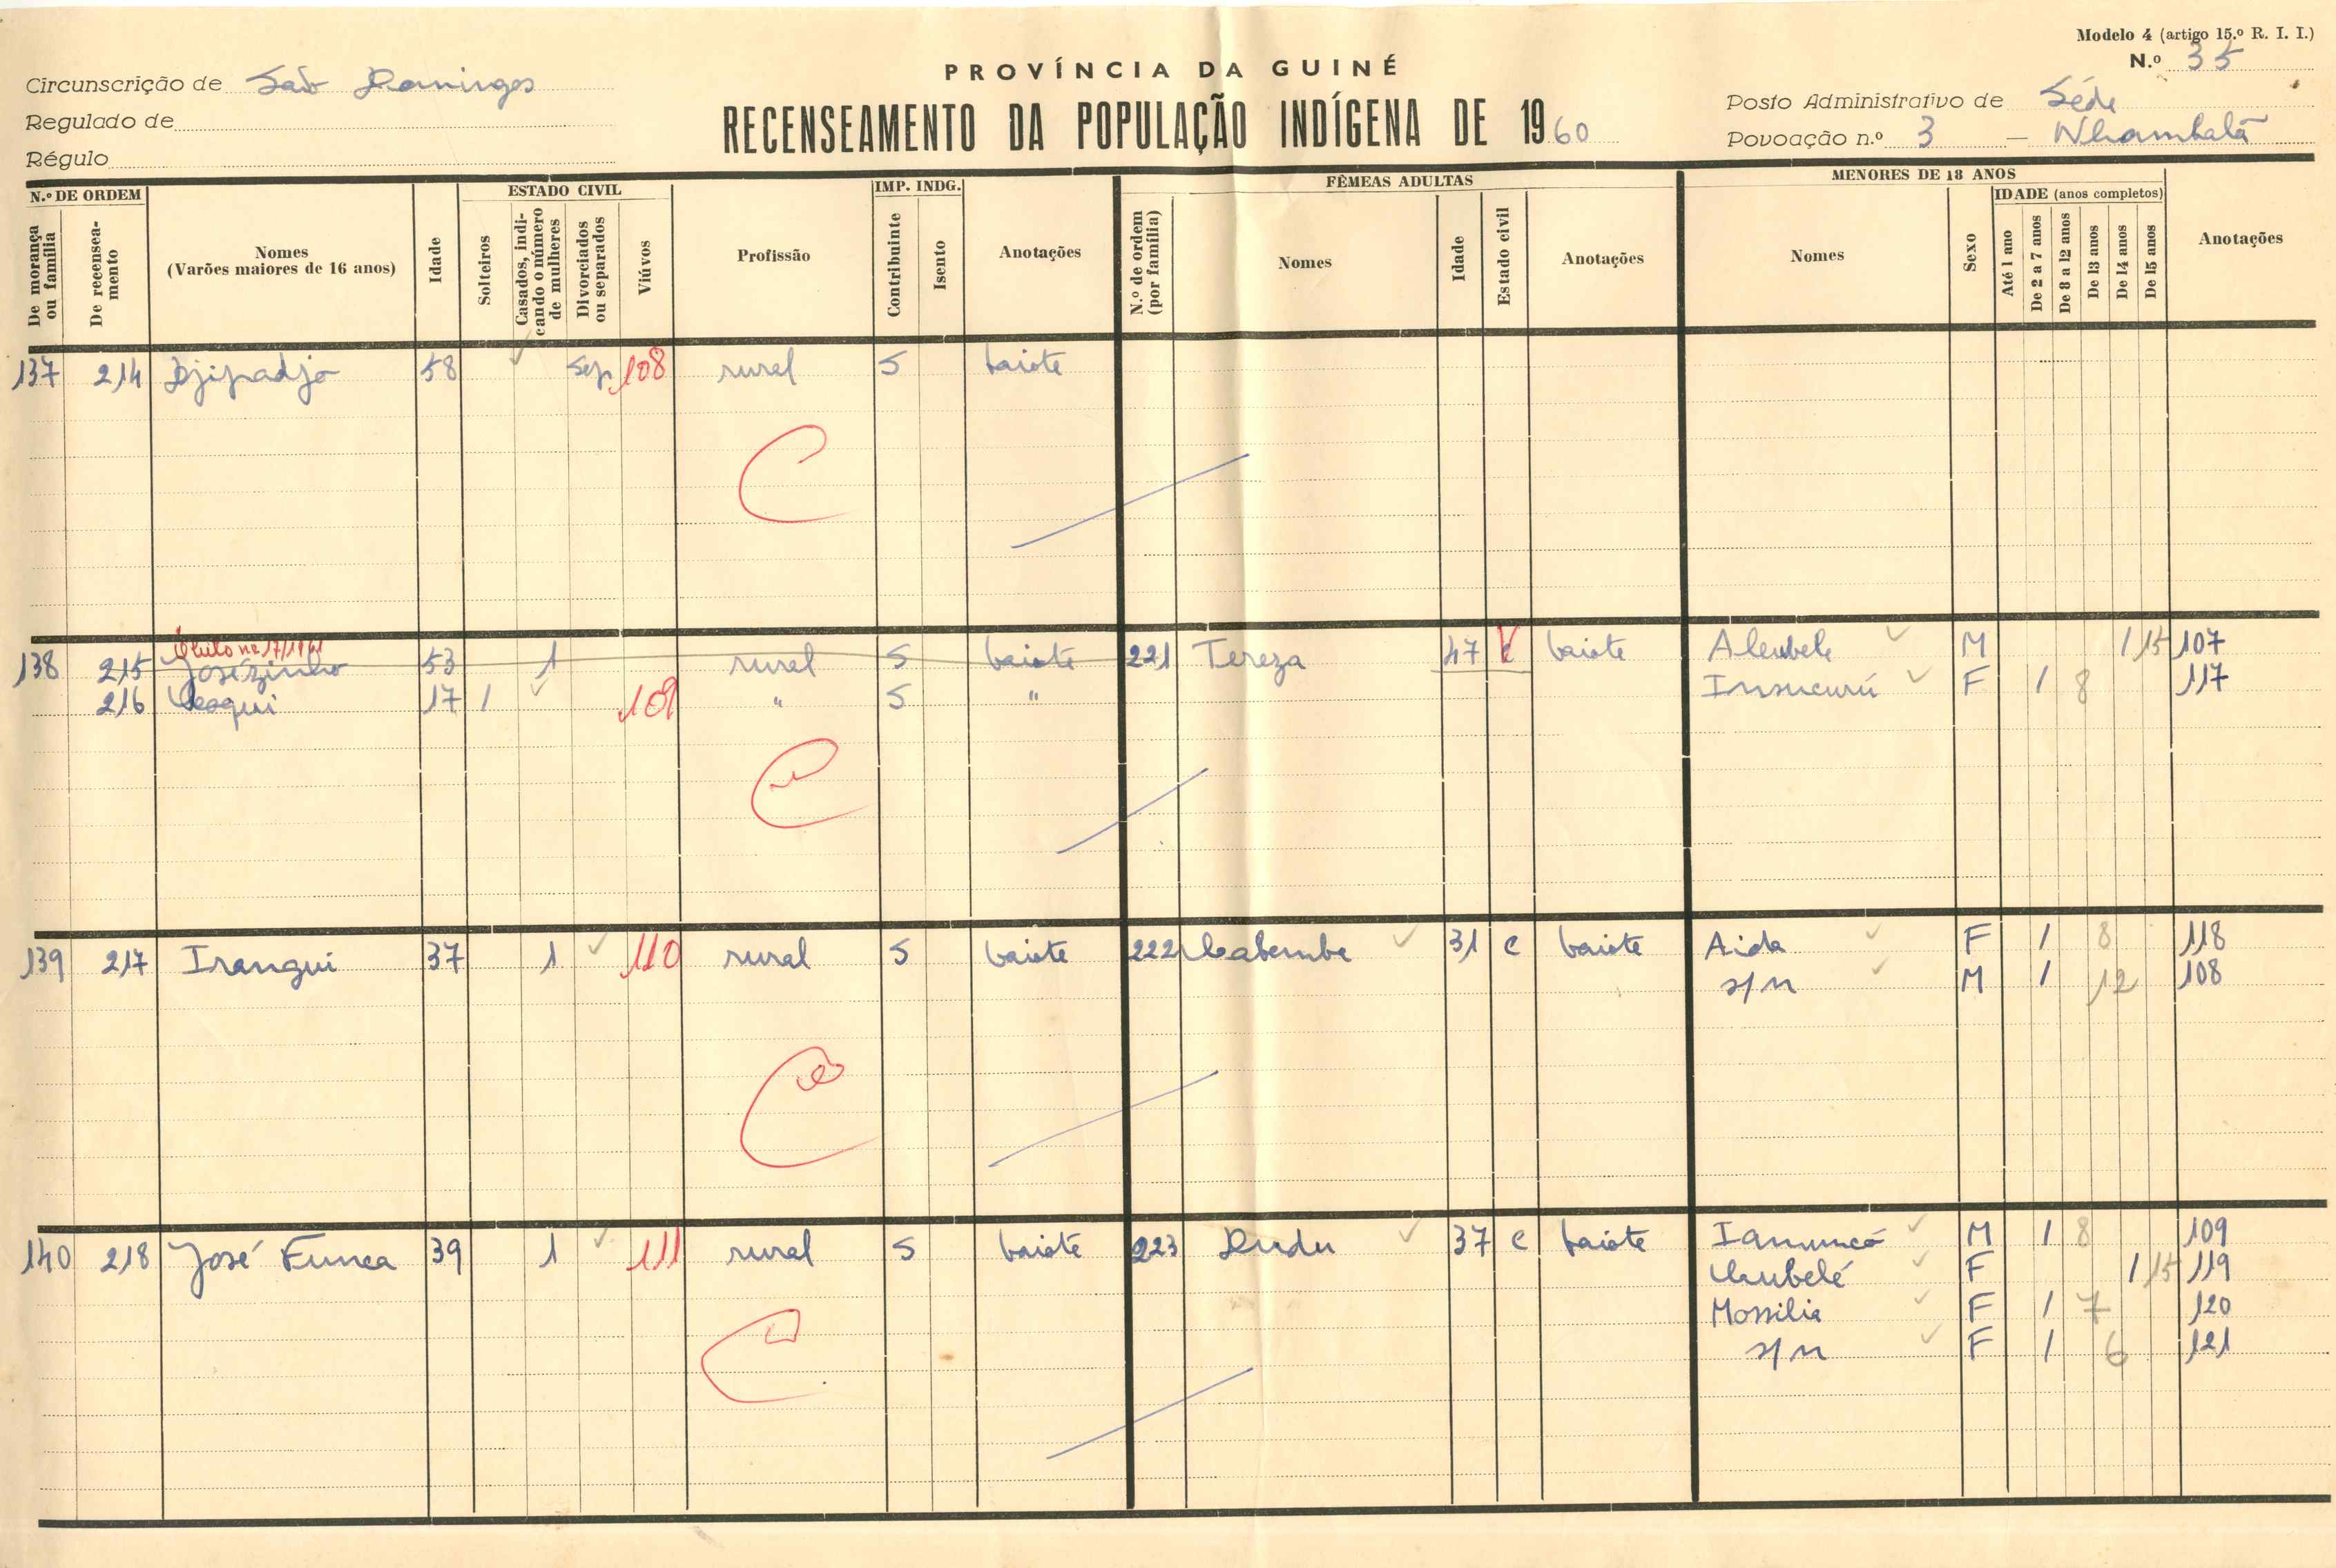 Modelo 4 (artigo 15.º R. I. I.)
N.º 35
PROVÍNCIA DA GUINÉ
RECENSEAMENTO DA POPULAÇÃO INDÍGENA DE 1960
Circunscrição de São Domingos
Regulado de
Régulo
Posto Administrativo de Séde
Povoação n.º 3 — Nhambalã
N.º DE ORDEM
De morança ou família
De recenseamento
Nomes
(Varões maiores de 16 anos)
Idade
ESTADO CIVIL
Solteiros
Casados, indicando o número de mulheres
Divorciados ou separados
Viúvos
Profissão
IMP. INDG.
Contribuinte
Isento
Anotações
FÊMEAS ADULTAS
N.º de ordem (por família)
Nomes
Idade
Estado civil
Anotações
MENORES DE 18 ANOS
Nomes
Sexo
IDADE (anos completos)
Até 1 ano
De 2 a 7 anos
De 8 a 12 anos
De 13 anos
De 14 anos
De 15 anos
Anotações
137 214 Djipadjo 58 Sep 108 rural S baiote
C
138 215 Josézinho 53 1 rural S baiote 221 Tereza 47 V baiote Aleubele M 1 15 107
216 17 1 109 " S " Insucurú F 1 8 117
C
139 217 Irangui 37 1 110 rural S baiote 222 Cabembe 31 c baiote Aida F 1 8 118
s/n M 1 12 108
C
140 218 José Funca 39 1 111 rural S baiote 223 Dudu 37 c baiote Iamuncó M 1 8 109
F 1 15 119
Mossilia F 1 7 120
s/n F 1 6 121
C